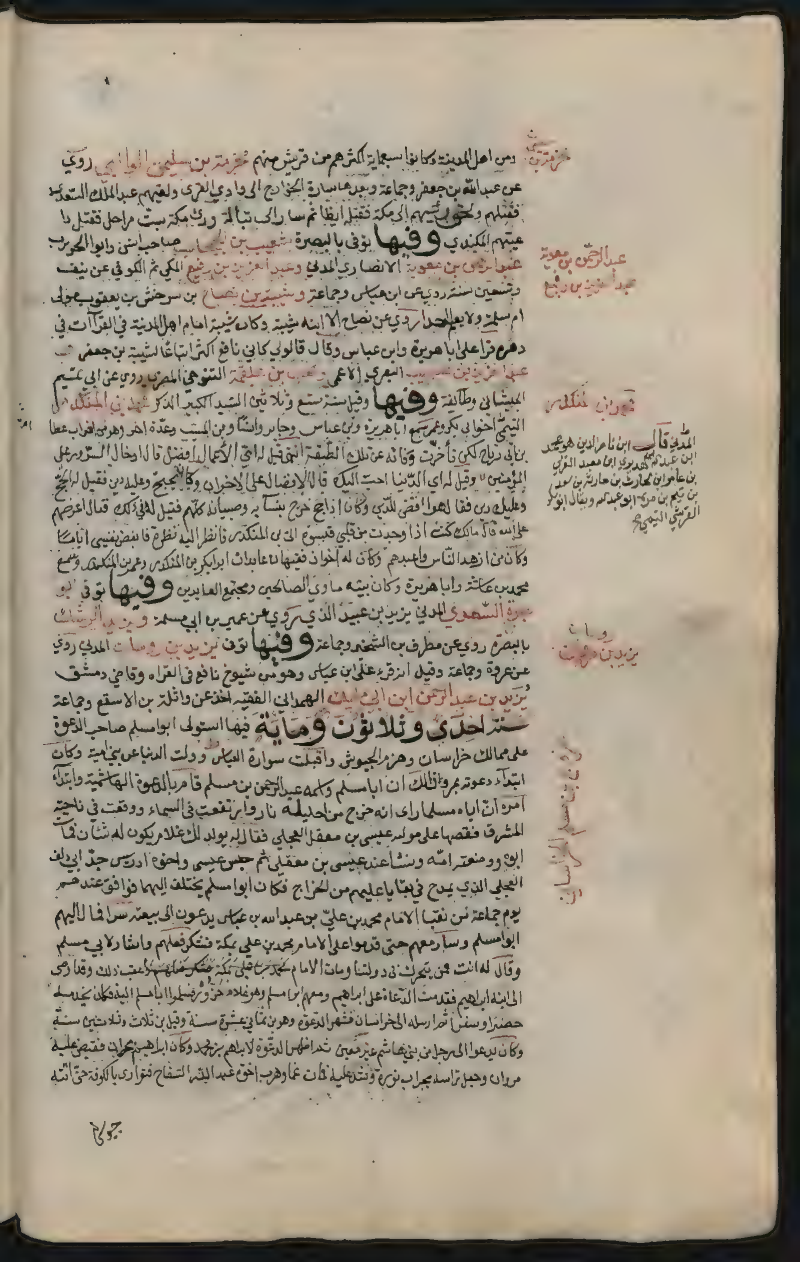 ومن اهل المدينة وكانوا سبعماية اكثرهم من قريش منهم مخرمة بن سليمن الوالبي روي
عن عبد الله بن جعفر وجماعة وبعدها سارة الخوارج الى وادي القرى ولقيهم عبد الملك السعدي
فقتلهم ولحق رئيسهم الى مكة فقتله ايضا ثم سار الى تبالة وراء مكة بست مراحل فقتل دا
عيتهم الكندي وفيها توفي بالبصرة شعيب بن الحبحاب صاحب انس وابو الحويرث
عبد الرحمن بن معوية الانصاري المدني وعبد العزيز بن رفيع المكي ثم الكوفي عن نيف
وتسعين سنة روي عن ابن عباس وجماعة وشيبة بن نصاح بن سرجس بن يعقوب مولى
ام سلمة ولا يعلم احد روي عن نصاح الا ابنه شيبة وكان شيبة امام اهل المدينة في القرآت في
دهره قرا على ابا هريرة وابن عباس وقال قالون كان نافع اكثر اتباعا لشيبة بن جعفر
عبد العزيز بن صهيب البصري الاعمى وكعب بن علقمة التنوخي المصري روي عن ابي تميم
الجيشاني وطائفة وفيها وقيل سنة سبع وثلاثين السيد الكبير الذكر محمد بن المنكدر
التيمي اخو ابي بكر وعمر سمع ابا هريرة وابن عباس وجابر وانسا وابن المسيب وعدة اخر وهو من اضراب عطا
بن ابي رباح لكن تأخرت وفاته عن تلك الطبقة انتهى قيل له اي الاعمال افضل قال ادخال السرور على
المؤمنين وقيل له اي الدنيا احب اليك قال الافضال على الاخوان وكان يحج وعليه دين فقيل له اتحج
وعليك دين فقال هو اقضى للدين وكان اذا حج خرج بنسآيه وصبيانه كلهم فقيل له في ذلك فقال اعرضهم
على الله قال مالك كنت اذا وجدت من قلبي قسوة اتى بن المنكدر فانظر اليه نظرة فابغض نفسي اياما
وكان من ازهد الناس واعبدهم وكان له اخوان فقيهان عابدان ابو بكر بن المنكدر وعمر بن المنكدر وسمع
محمد بن عائشة وابا هريرة وكان بيته ماوى الصالحين ومجتمع العابدين وفيها توفي ابو
وجزة السعدي المدني يزيد بن عبيد الذي يروي عن عمر بن ابي سلمة ويزيد الرشك
بالبصرة روي عن مطرف بن الشخير وجماعة وفيها توفي يزيد بن رومان المدني روي
عن عروة وجماعة وقيل انه قرء على ابن عباس وهو من شيوخ نافع في القراه وقاضي دمشق
يزيد بن عبد الرحمن ابن ابي مالك الهمداني الفقيه اخذ عن واثلة بن الاسقع وجماعة
سنة احدى وثلاثون وماية فيها استولى ابو مسلم صاحب الدعوة
على ممالك خراسان وهزم الجيوش واقبلت سوارة العباس وولت الدنيا عن بني امية وكان
ابتداء دعوته بمرو وذلك ان ابا مسلم واسمه عبد الرحمن بن مسلم قام بالدعوة الهاشمية وابتداء
امره ان اباه مسلما راى انه خرج من احليله نار وارتفعت في السماء ووقعت في ناحية
المشرق فقصها على مولاه عيسى بن معقل العجلي فقال له يولد لك غلام يكون له شان فمات
ابوه ووضعته امه ونشا عند عيسى بن معقل ثم حبس عيسى واخوه ادريس جد ابي دلف
العجلي الذي يمدح في بقايا عليهم من الخراج فكان ابو مسلم يختلف اليهما فوافق عندهم
يوم جماعة من نقبا الامام محمد بن علي بن عبد الله بن عباس يدعون الى بيعته سرا فمال اليهم
ابو مسلم وسار معهم حتى قدموا على الامام محمد بن علي بمكة فشكر فعلهم واشار لابي مسلم
وقال له انت ممن يتحرك في دولتنا ومات الامام محمد بن علي عقب ذلك وقد اوصى
الى ابنه ابراهيم فقدمت الدعاة على ابراهيم ومعهم ابو مسلم وهو غلام حزور فسلموا ابا مسلم اليه فكان يخدمه
حضرا وسفرا ثم ارسله الى خراسان فشهر الدعوة وهو بن ثماني عشرة سنة وقيل بن ثلاث وثلاثين سنة
وكان يدعوا الى رجل من بني هاشم غير معين ثم اظهر الدعوة لابراهيم بن محمد وكان ابراهيم بحران فقبض عليه
مروان وجعل راسه بجراب نورة وشد عليه فمات غما وهرب اخوه عبد الله السفاح فتوارى بالكوفة حتى اتته
جيوش
عبد الرحمن بن معوية
عبد العزيز بن رفيع
محمد بن المنكدر
المدني قال ابن ناصر الدين هو محمد
ابن عبد الله
بن عامر بن الحارث بن حارثة بن سعد
بن تيم بن مرة ابو عبد الله ويقال ابو بكر
القرشي التيمي
رومان
يزيد بن